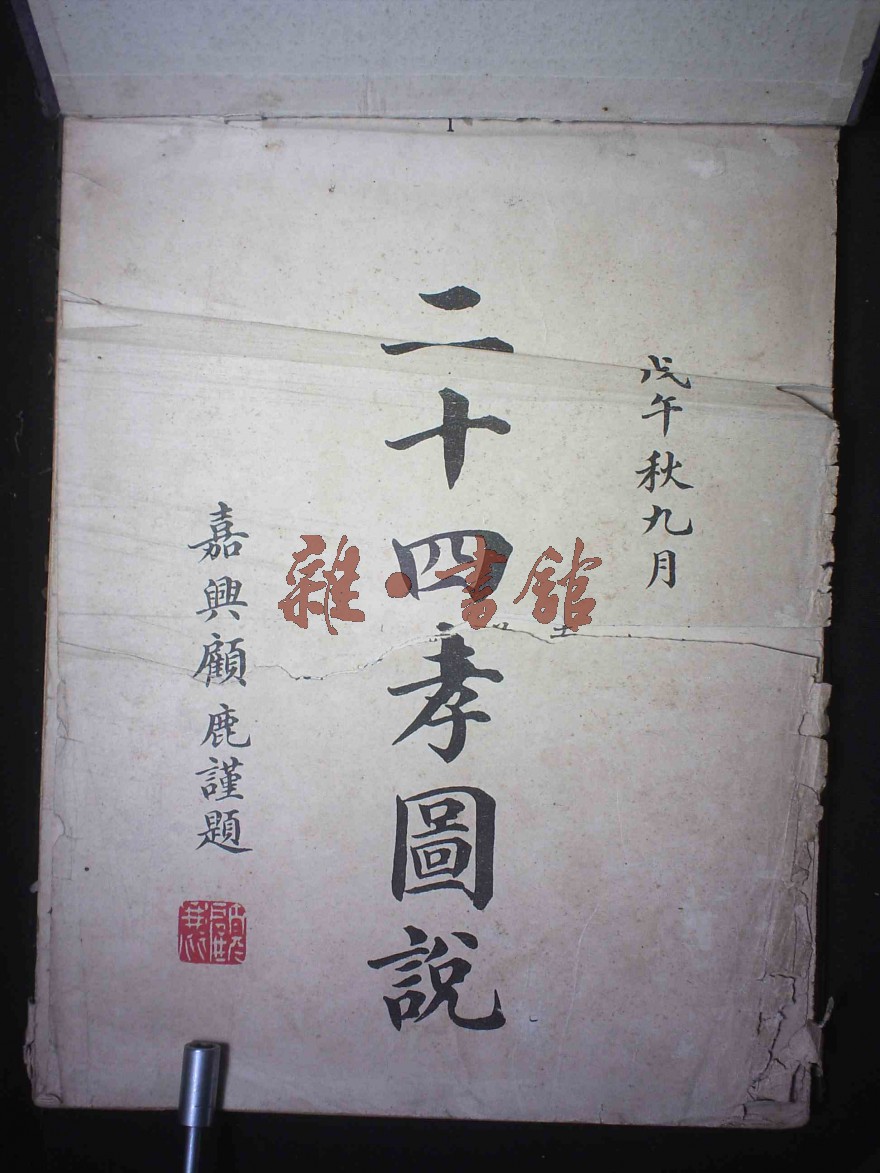 1
戊午秋九月
二十四孝圖說
嘉興顧鹿謹題
雜·書館